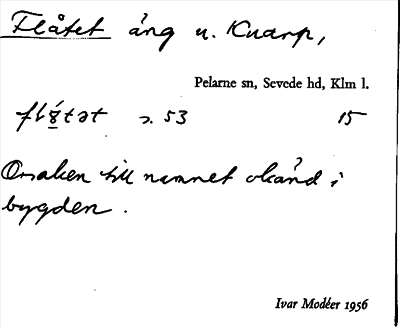 Flåtet äng u. Knarp,
Pelarne sn, Sevede hd, Klm l.
s. 53 15
Orsaken till namnet okänd i
bygden.
Ivar Modéer 1956